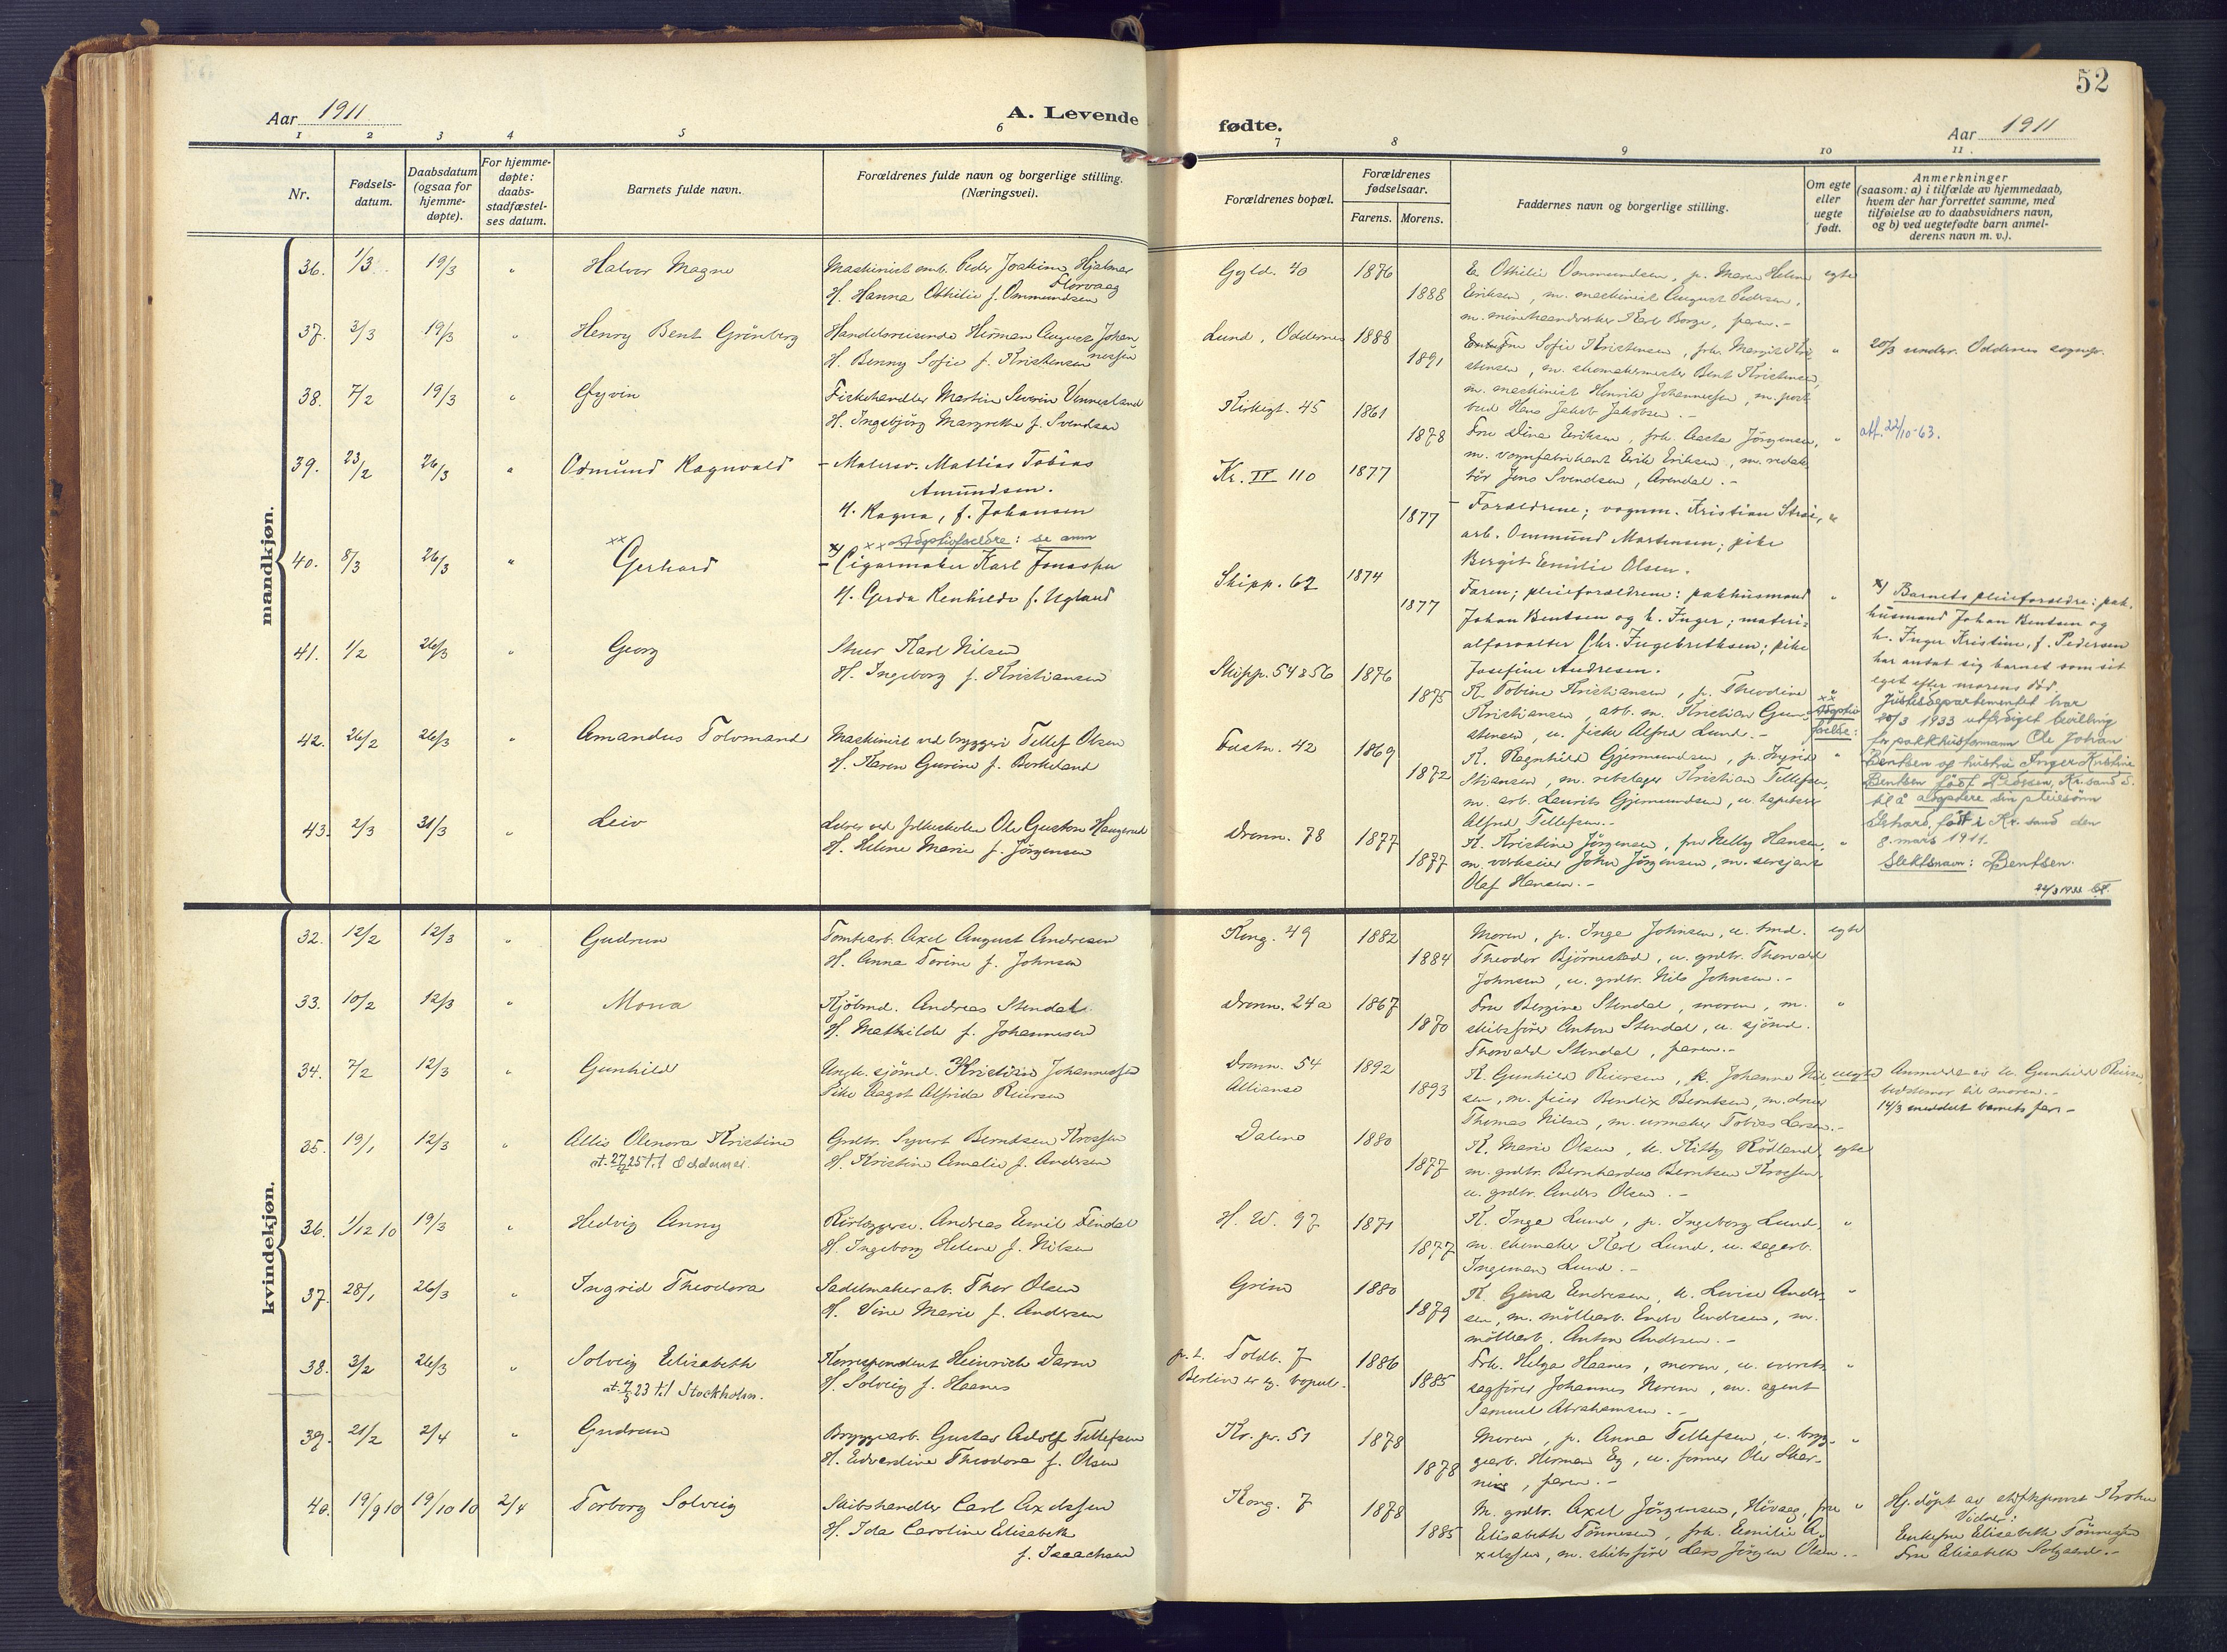 52
Aar 1911
A. Levende
fødte.
Aar 1911
1 2 3 4 5 6
7 8 9 10 11
Nr.
Fødsels-
datum.
Daabsdatum
(ogsaa for
hjemme-
døpte).
For hjemme-
døpte:
daabs-
stadfæstel-
ses datum.
Barnets fulde navn.
Forældrenes fulde navn og borgerlige stilling.
(Næringsvei).
Forældrenes bopæl.
Forældrenes
fødselsaar.
Farens. Morens.
Faddernes navn og borgerlige stilling.
Om egte
eller
uegte
født.
Anmerkninger
(saasom: a) i tilfælde av hjemmedaab,
hvem der har forrettet samme, med
tilføielse av to daabsvidners navn,
og b) ved uegtefødte barn anmel-
derens navn m. v.).
mandkjøn.
36. 1/3 19/3 " Halvor Magne
Maskinist Peder Joakim Hjalmar
Florvaag
H. Hanna Othilie f. Ommundsen
Gyld. 40 1876
1888
E. Othilie Ommundsen, p. Maren Helene egte
Eriksen, m. maskinist August Pedersen,
Karl Borge, faren.-
37. 3/3 19/3 " Henry Bent Grönberg
Handelsreisende Herman August Johan
nessen
H. Benny Sofie f. Kristensen
Lund, Oddernes 1888
1891
Fru Sofie Kristensen, frk. Margit Kri- "
stensen, m. skomakermester Bent Kristensen,
m. maskinist Henrik Johannessen, m. post
bud Hans Jakob Jakobsen.-
20/3 underr. Oddernes sognepr.
38. 7/2 19/3 " Øyvin
Fiskehandler Martin Severin Vennesland
H. Ingebjörg Margrethe f. Svendsen
Kirkegt. 45 1861
1878
Fru Dina Eriksen, frk. Aasta Jörgensen, "
m. vognfabrikant Erik Eriksen, m. redak
tör Jens Svendsen, Arendal.-
att. 22/10-63.
39. 23/2 26/3 " Odmund Ragnvald
- Malersv. Mattias Tobias
Amundsen.
H. Ragna, f. Johansen
Kr. IV 110 1877
1877
- Forældrene; vognm. Kristian Strai, "
arb. Ommund Mortensen; pike
Bergit Emilie Olsen.
40. 8/3 26/3 " xx Gerhard
x) xx Adoptivforeldre: se anm
- Cigarmaker Karl Jonassen
H. Gerda Renhilde f. Ugland
Skipp. 62 1874
1877
Faren; pleieforældrene: pakhusmand "
Johan Bentsen og h. Inger; materi-
alforvalter Chr. Ingebrethsen; pike
Josefine Andresen.
x) Barnets pleieforældre: pak-
husmand Johan Bentsen og
h. Inger Kristine, f. Pedersen
har antat sig barnet som sit
eget efter morens død.
xx
Adoptiv
foreldre:
Justisdepartementet har
20/3 1933 utferdiget bevilling
for pakkhusformann Ole Johan
Bentsen og hustru Inger Kristine
Bentsen født Pedersen, Kr.sand S.
til å adoptere sin pleiesönn
Gerhard, født i Kr.sand den
8. mars 1911.
Slektsnavn: Bentsen.
41. 1/2 26/3 " Georg
Stuer Karl Nilsen
H. Ingeborg f. Kristiansen
Skipp. 54 & 56 1876
1875
K. Tobine Kristiansen, p. Theodine "
Kristiansen, arb. m. Kristian Gun-
stensen, u. fisker Alfred Lund.-
42. 26/2 26/3 " Amandus Tolvmand
Maskinist ved bryggeri Tellef Olsen
H. Karen Gurine f. Birkeland
Festn. 42 1869
1872
K. Ragnhild Gjermundsen, p. Ingrid "
Stiansen, m. rebslager Kristian Tellefsen,
m. arb. Laurits Gjermundsen, u. tapetserer
Alfred Tellefsen.-
43. 2/3 31/3 " Leiv
Lærer ved folkeskolen Ole Gustav Haugerud
H. Helene Marie f. Jörgensen
Dronn. 78 1877
1877
K. Kristine Jörgensen, fru Nelly Hansen, "
m. verkseier John Jörgensen, m. sersjant
Olaf Hansen.-
kvindekjøn.
32. 12/2 12/3 " Gudrun
Tomtearb. Axel August Andresen
H. Anna Torine f. Johnsen
Kong. 49 1882
1884
Moren, p. Inga Johnsen, u. smd. egte
Theodor Bjørnestad, u. grdbr. Thorvald
Johnsen, u. grdbr. Nils Johnsen.-
33. 10/2 12/3 " Mona
Kjöbmd. Andreas Stendal
H. Mathilde f. Johannesen
Dronn. 24a 1867
1870
Fru Bergine Stendal, moren, m. "
skibsförer Anton Stendal, u. sjömd.
Thorvald Stendal, faren.-
34. 7/2 12/3 " Gunhild
Ungk. sjömd. Kristian Johannessen
Pike Aagot Alfride Reiersen
Dronn. 54 1892
Allianse 1893
K. Gunhild Reiersen, k. Johanne Nil- uegte
sen, m. feier Bendix Berntsen, m. dreier
Thomas Nilsen, m. urmaker Tobias Larsen.-
Anmeldt av k. Gunhild Reiersen,
bedstemor til moren.-
14/3 meddelt barnets far-
35. 19/1 12/3 " Allis Olenora Kristine
at. 27/2 25 til Oddernes.
Grdbr. Syvert Berndsen Krossen
H. Kristine Amalie f. Andersen
Dalene 1880
1877
K. Marie Olsen, k. Kitty Rödland, egte
m. grdbr. Bernhardus Berntsen Krossen,
u. grdbr. Anders Olsen.-
36. 1/12 10 19/3 " Hedvig Anny
Rörleggersv. Andreas Emil Tindal
H. Ingeborg Helene f. Nilsen
H. W. 97 1871
1877
K. Inga Lund, p. Ingeborg Lund, "
m. skomaker Karl Lund, u. sagarb.
Ingeman Lund.-
37. 28/1 26/3 " Ingrid Theodora
Sadelmakerarb. Thor Olsen
H. Sine Marie f. Andersen
Grim 1880
1879
K. Gina Endresen, k. Lovise Ander- "
sen, m. möllearb. Endre Endresen, m.
möllearb. Anton Andersen.-
38. 3/2 26/3 " Solveig Elisabeth
at. 7/5 23 til Stockholm.
Korrespondent Heinrich Daren
H. Solveig f. Haanes
p.t. Toldb. 7 1886
Berlin er eg. bopæl. 1885
Frk. Helga Haanes, moren, u. overrets "
sagfører Johannes Norem, m. agent
Samuel Abrahamsen.-
39. 21/2 2/4 " Gudrun
Bryggearb. Gustav Adolf Tellefsen
H. Edvardine Theodora f. Olsen
Kr. pr. 51 1878
1878
Moren, p. Anna Tellefsen, u. bryg- "
gearb. Herman Eg, u. former Ole Skar-
ning, faren.-
40. 19/9 10 19/10 10 2/4 Torborg Solveig
Skibshandler Carl Axelssen
H. Ida Caroline Elisabeth
f. Isaachsen
Kong. 7 1878
1885
M. grdbr. Axel Jörgensen, Hövaag, fru "
Elisabeth Tönnesen, frk. Emilie A-
xelssen, m. skibsförer Lars Jörgen Olsen.-
Hj. döpt av stiftsprovst Krohn
Vidner:
Enkefru Elisabeth Tönnessen
Fru Elisabeth Solgaard.-